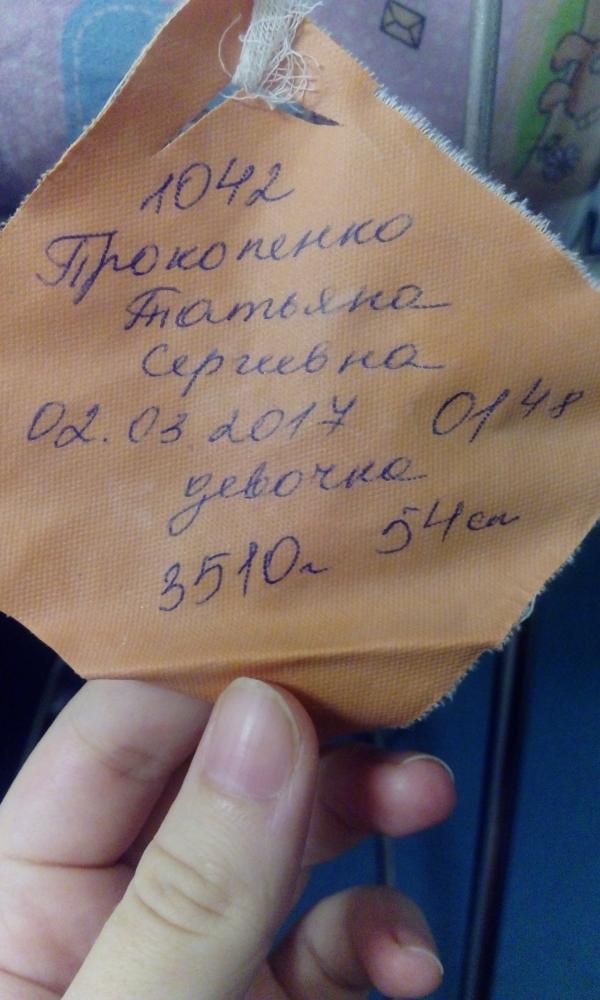 1042
Прокопенко
Татьяна
Сергиевна
02.03.2017 01 48
девочка
3510г 54см